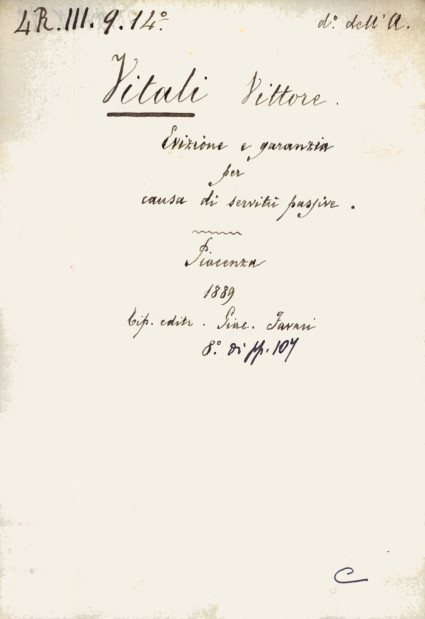 4R.III.9.14º. dº. dell' A.
Vitali Vittore.
Evizione e garanzia
per
causa di servitù passive.
Piacenza
1889
Tip. editr. Giac. Favari
8º. di pp. 107
C